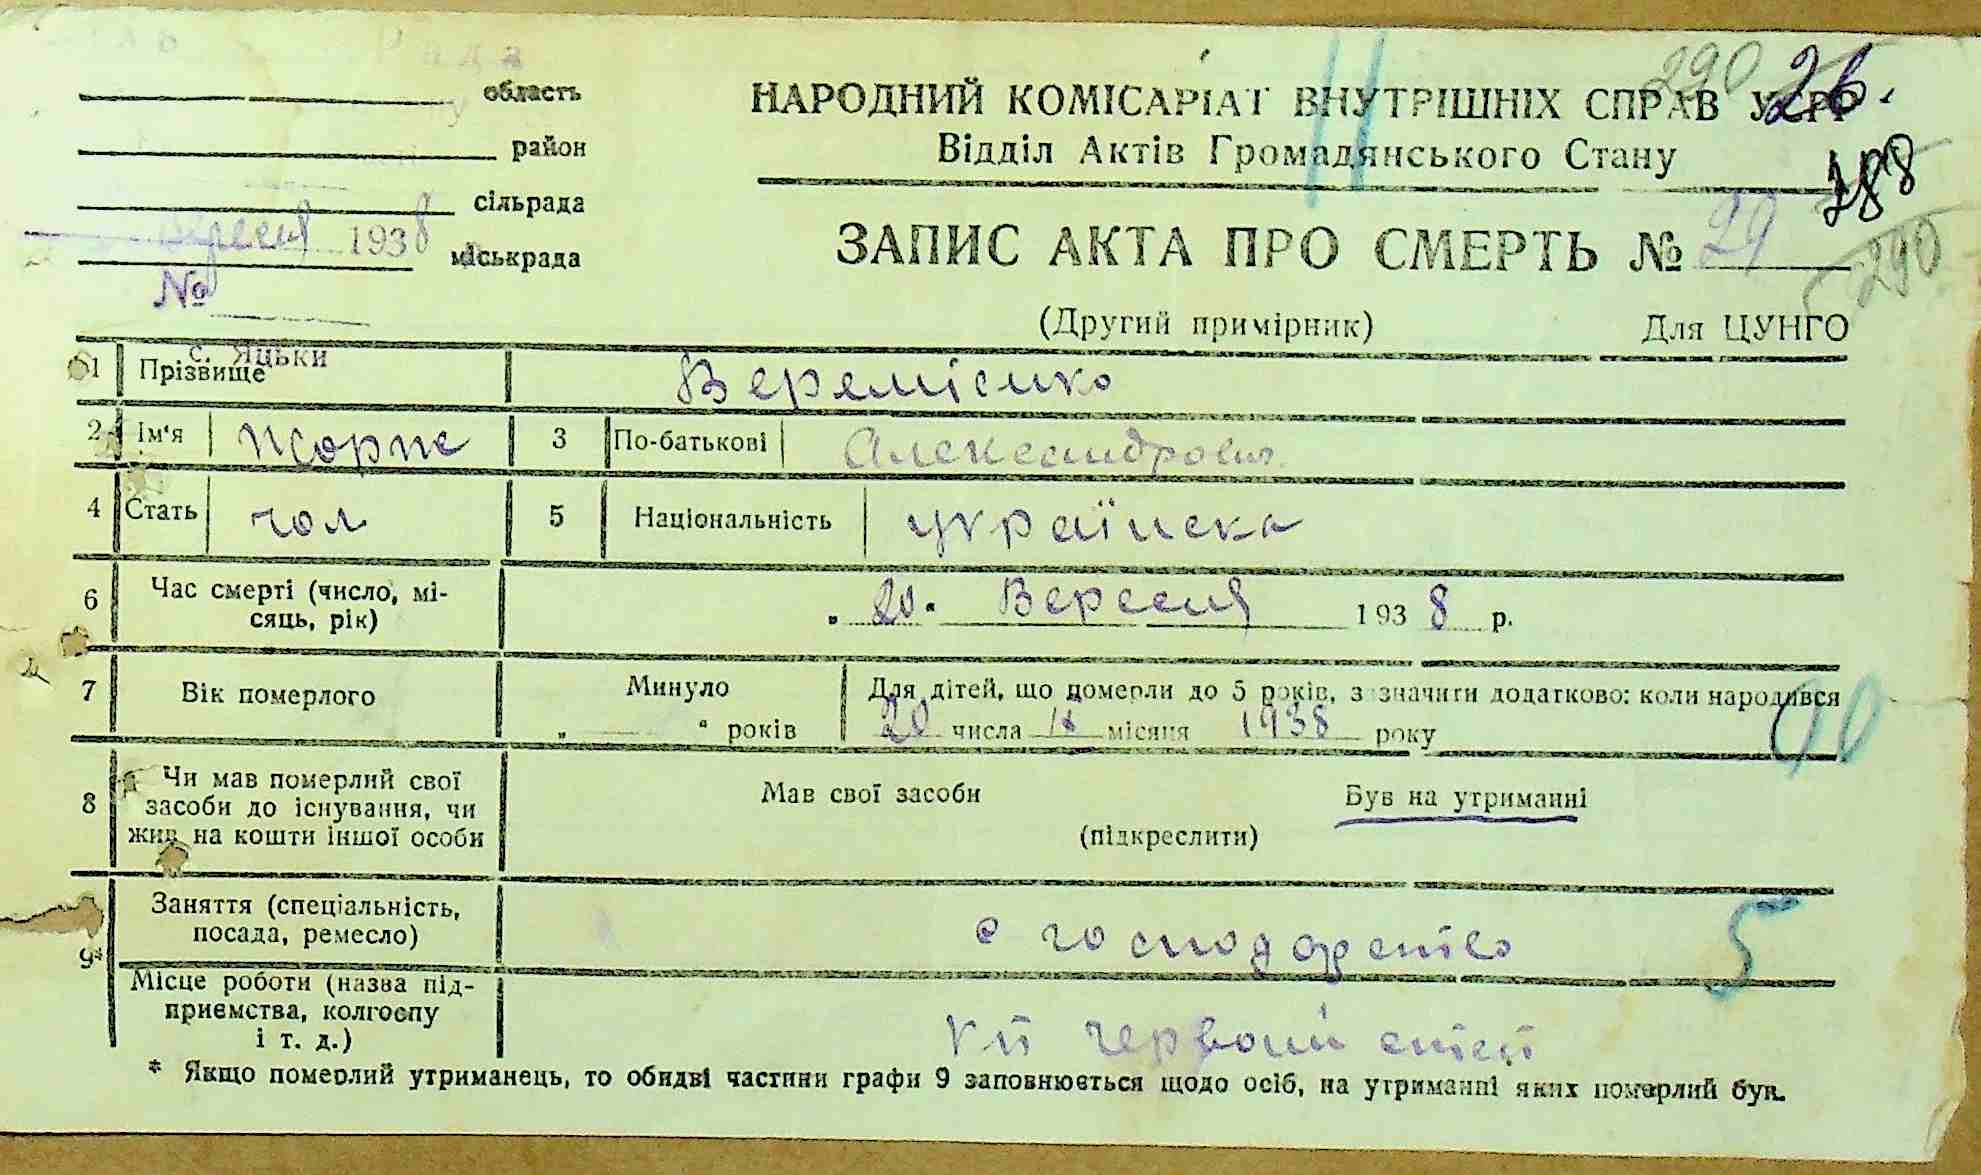 Рада
область
район
сільрада
Вересня 1938
міськрада
№
с. Яцьки
НАРОДНИЙ КОМІСАРІАТ ВНУТРІШНІХ СПРАВ УСРР
Відділ Актів Громадянського Стану
290 26.
188
290
11
ЗАПИС АКТА ПРО СМЕРТЬ № 29
(Другий примірник) Для ЦУНГО
1 Прізвище Веремієнко
2 Ім'я Жорж 3 По-батькові Александрович
4 Стать чол 5 Національність українска
6 Час смерті (число, мі-
сяць, рік) „20" Вересня 1938 р.
7 Вік померлого Минуло Для дітей, що померли до 5 років, зазначити додатково: коли народився
„ " років 20 числа місяця 1938 року
10
8 Чи мав померлий свої
засоби до існування, чи
жив на кошти іншої особи
Мав свої засоби Був на утриманні
(підкреслити)
9* Заняття (спеціальність,
посада, ремесло) с господарство
5
Місце роботи (назва під-
приємства, колгоспу
і т. д.)
* Якщо померлий утриманець, то обидві частини графи 9 заповнюється щодо осіб, на утриманні яких померлий був.